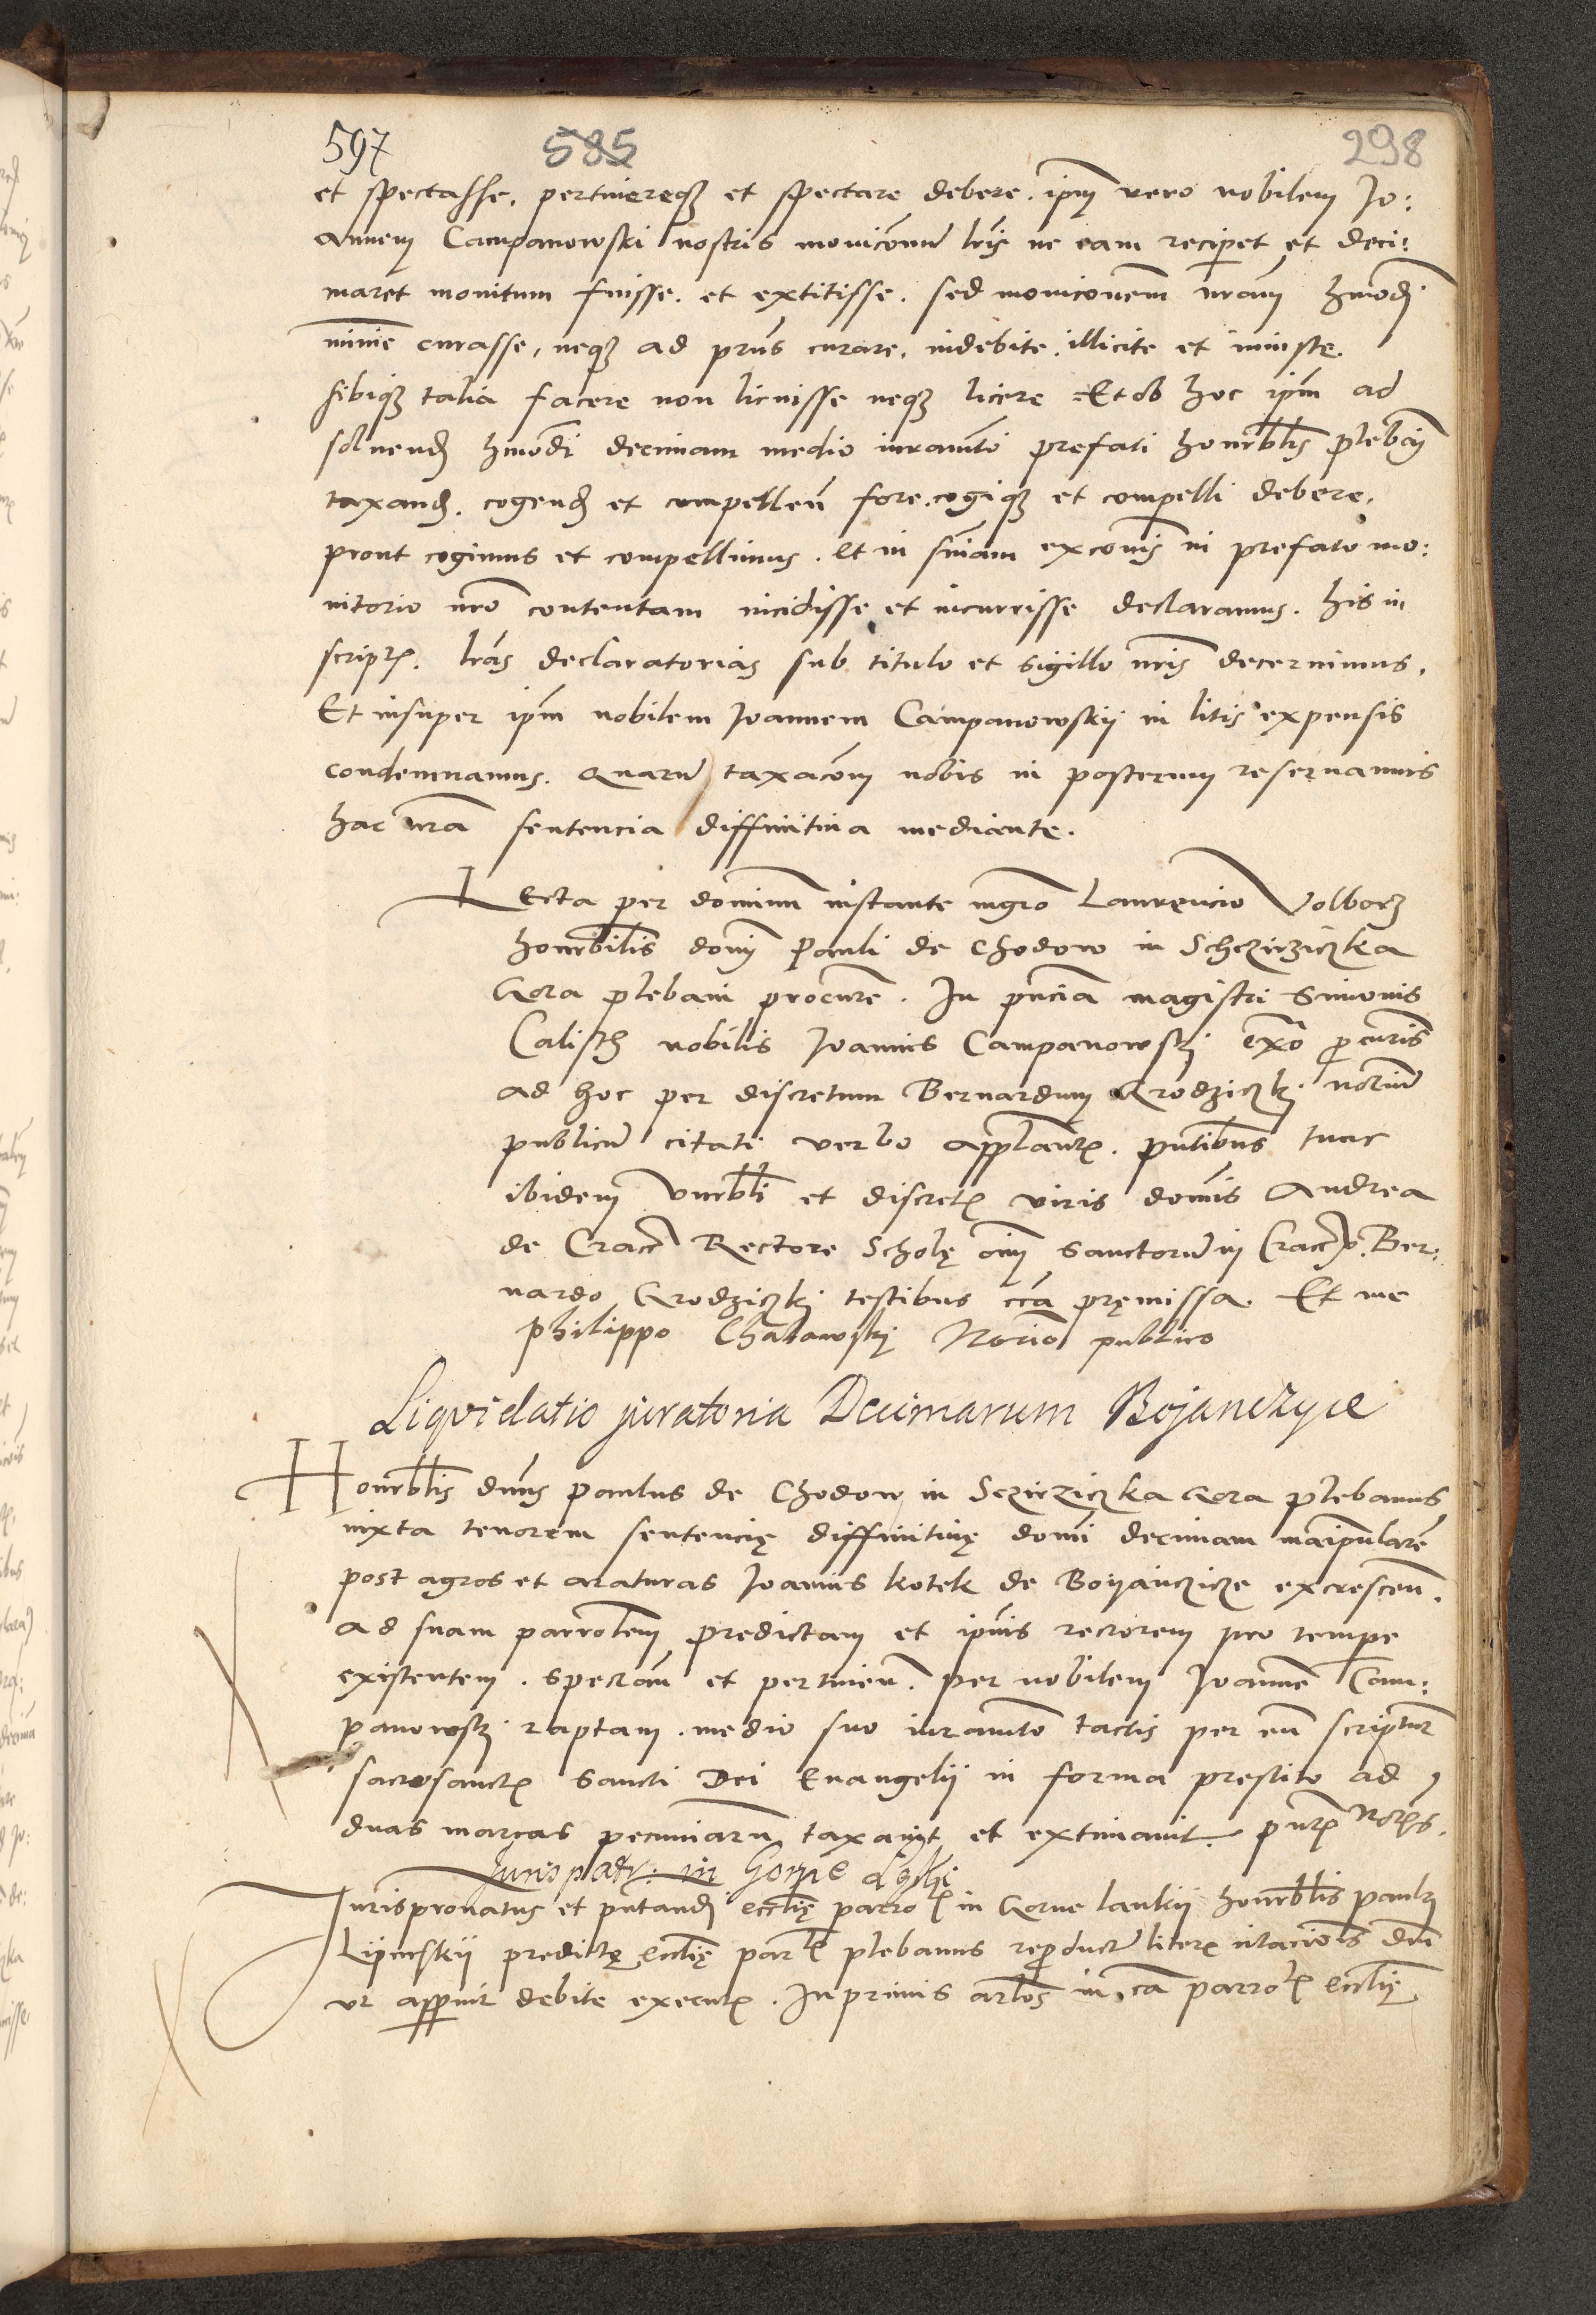 597 585 298
et spectasse, pertinereqz et spectare debere. ipm vero nobilem Jo:
annem Campanowski nostris moniconum lris ne eam reciperet et deci:
maret monitum fuisse. et extitisse. sed moniconem nram hmodi
minime curasse, neqz ad prns curare, indebite, illicite et iniuste.
sibiqz talia facere non licuisse neqz licere Et ob hoc ipm ad
soluend hmodi decimam medio iuramto prefati honrblis plebani
taxand. cogend et compellen fore, cogiqz et compelli debere,
prout cogimus et compellimus. Et in sniam excoms in prefato mo:
nitorio nro contentam incidisse et incurrisse declaramus. his in
script. lras declaratorias sub titulo et sigillo nris decernimus.
Et insuper ipm nobilem Joannem Campanowskij in litis expensis
condemnamus. Quaru taxacom nobis in posterum reservamus
hac nra sentencia diffinitiva mediante.
Lecta per dominum instante mgro Laurencio Volborz
honrbilis domi Pauli de Chodow in Schczirziczka
Gora plebani procure. In pnciam magistri Simonis
Calisth nobilis Joannis Campanowskj procuris
ad hoc per discretum Bernardum Grodziczkj notariu
publicu citati verbo applant. pntibus tunc
ibidem vnrbli et discret viris domis Andrea
de Crac Rectore Scholę oim sanctoru in Crac Ber:
nardo Grodziczkj testibus cca pręmissa. Et me
Philippo Chalawskj Norio publico
Liqvidatio juratoria Decimarum Bojanczyce
Honrblis dnus Paulus de Chodow in Sczirziczka Gora plebanus
iuxta tenorem sentencię diffinitivę domi decimam maipularem
post agros et araturas Joannis kotek de Boyanczicze excrescen.
ad suam parrolem predictam et ipius rectorem pro tempe
existentem. spectan et pertinen. per nobilem Joannem Cam:
panowskj raptam. medio suo iuramto tactis per eu scriptur
sacrosanct sancti Dei Evangelij in forma prestito ad
duas marcas pecuniaru taxavit et extimavit. pnt Nor
Juris patr: in Gorne
Jurispronatus et pntandi ecclię parro in Gorne lankij honrblis Paulus
Lipinskij predictę ecclię par plebanus reproduct liter citacionis dni
ut apparuit debite execut. In primis in ca parro ecclię